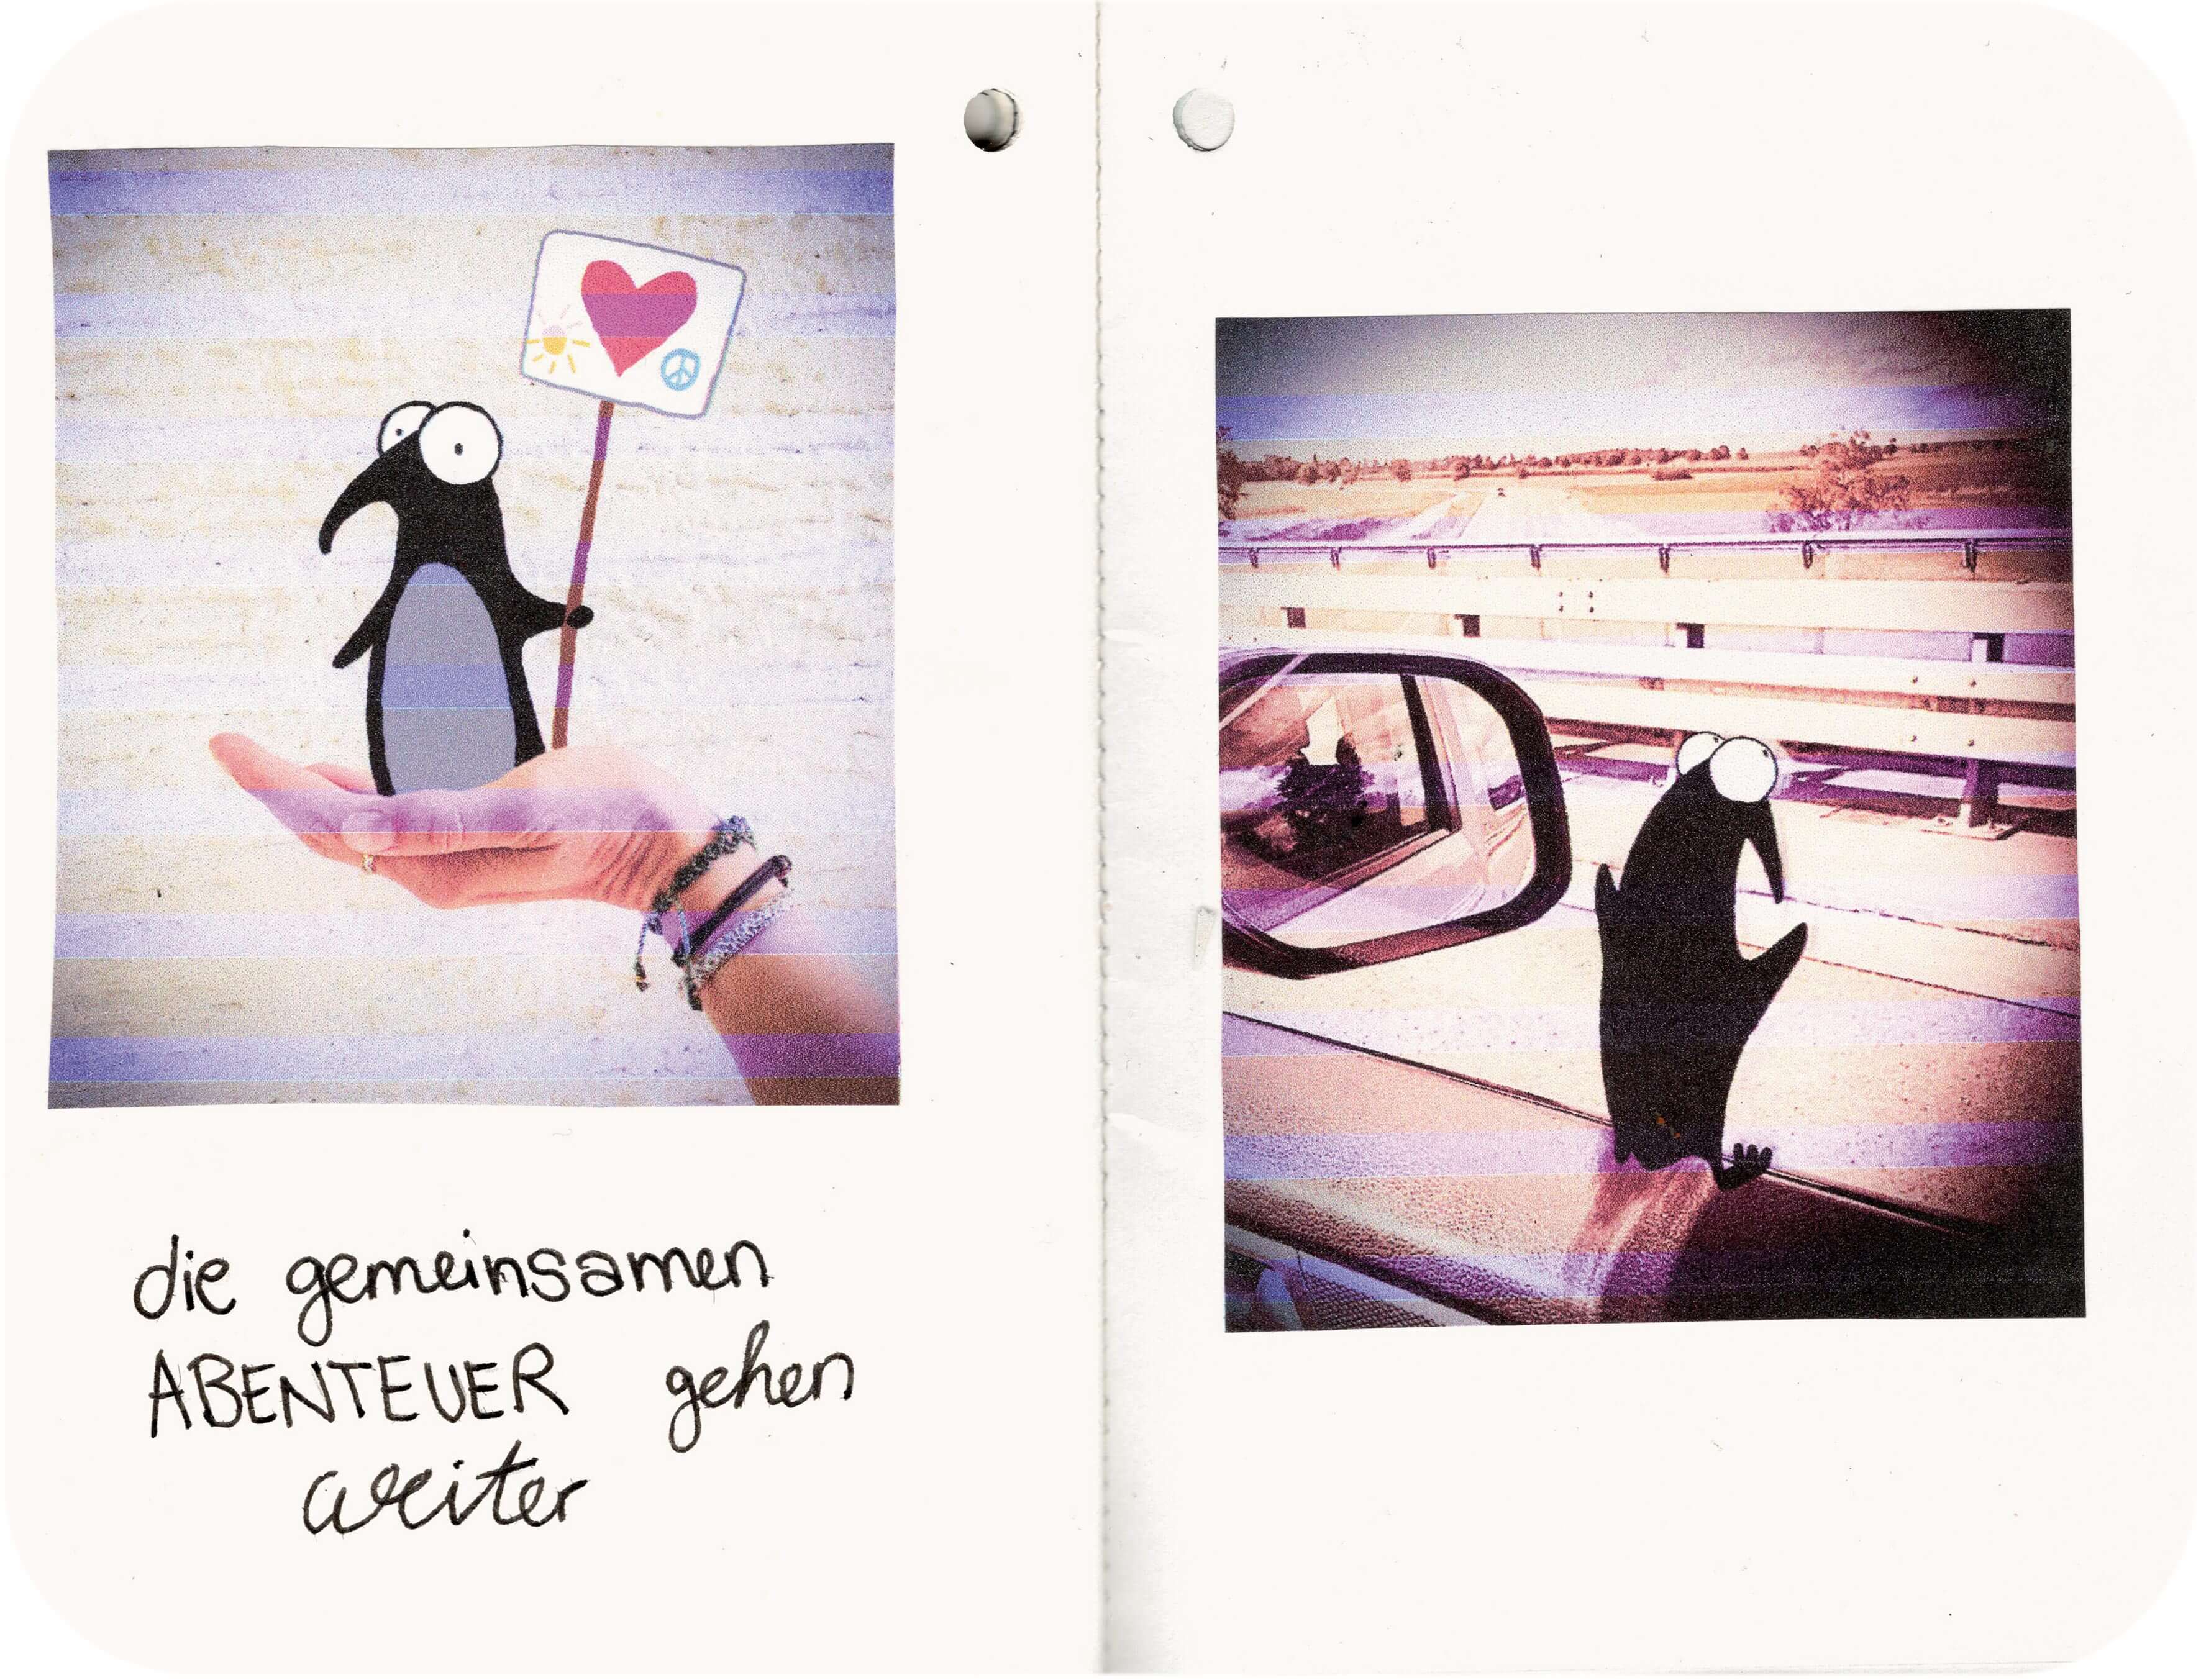 die gemeinsamen
ABENTEUER gehen
weiter